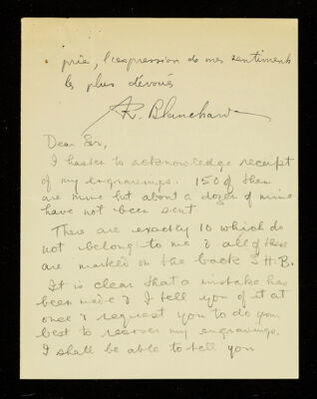 prie, l'expression de mes sentiments
les plus dévoués
R. Blanchard
Dear Sir,
I hasten to acknowledge receipt
of my engravings. 150 of them
are mine but about a dozen of mine
have not been sent
There are exactly 10 which do
not belong to me & all of these
are marked on the back S.H.B.
It is clear that a mistake has
been made & I tell you of it at
once & request you to do your
best to recover my engravings.
I shall be able to tell you